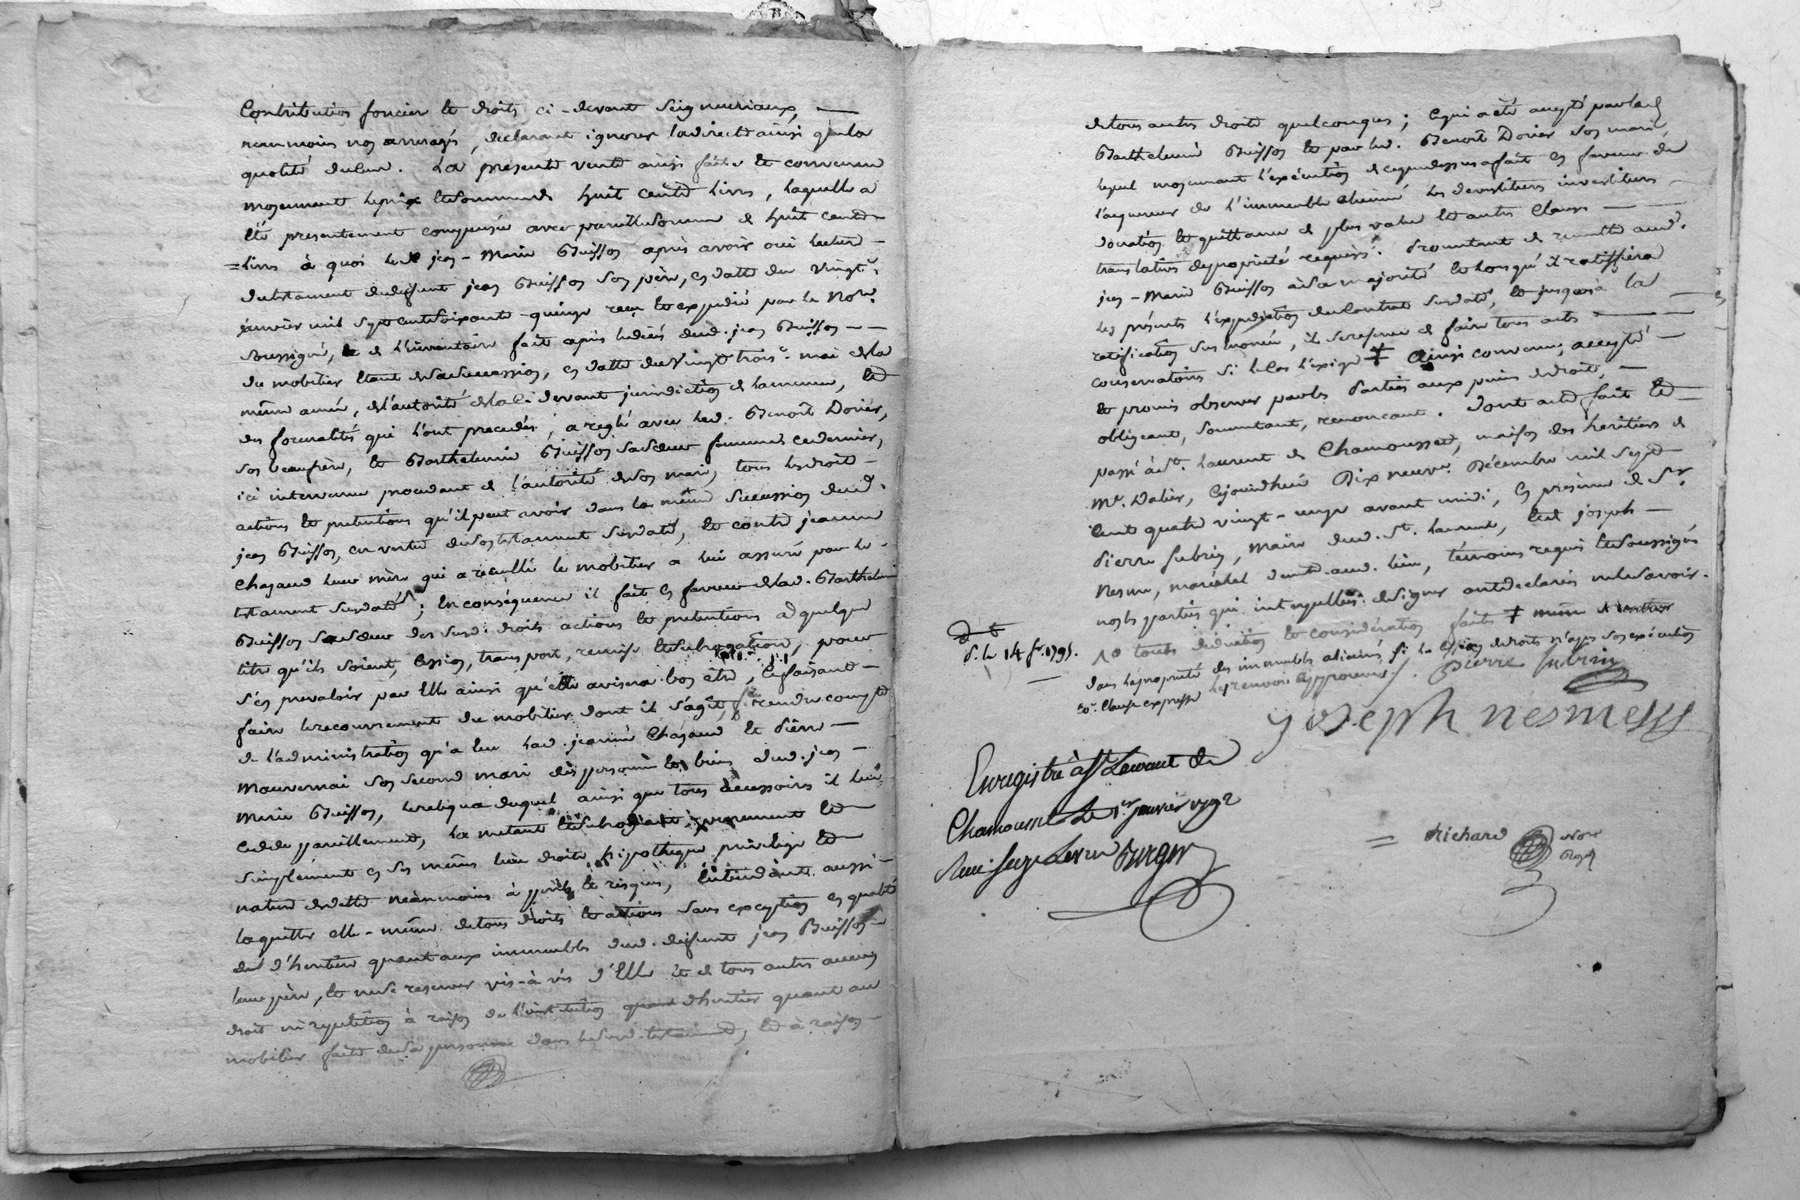 Contribution foncier et droits ci-devant seigneuriaux, —
neanmoins nos arrerages, declarant ignorer la directe ainsi que la
quotité d'iceux. La presente vente ainsi faite et convenue
moyennant le prix et somme de huit cents livres, laquelle a
été presentement compensée avec pareille somme de huit cents
= livres à quoi led. jean-Marie Buisson après avoir oui lecture
du testament dudefunt jean Buisson son père, en datte du vingt
janvier mil sept cent soixante-quinze reçu et expedié par le Not.re
soussigné, et de l'inventaire fait après le décès dud. jean Buisson — —
du mobilier étant de sa succession, en datte du vingt trois mai de la
même année, de l'autorité de la ci devant jurisdiction de et
des formalités qui l'ont precedé, a reglé avec led. Benoît Dorier,
son beaufrère, et Barthelemie Buisson sa sœur femme de ce dernier,
ici intervenue procedant de l'autorité de son mari, tous les droits
actions et pretentions qu'il peut avoir dans la même succession dud.
jean Buisson, en vertu de son testament susdatté, et contre jeanne
Chazaud leur mère qui a recueilli le mobilier a lui assuré par le
testament susdatté; En conséquence il fait en faveur de lad. Barthelemie
Buisson sa sœur des susd. droits actions et pretentions a quelque
titre qu'ils soient, cession, transport, remise et subrogation, pour
s'en prevaloir par elle ainsi qu'elle avisera bon être, en faisant
faire le recouvrement du mobilier dont il s'agit, rendre compte
de l'administration qu'a eu lad. jeanne Chazaud et Pierre —
Mauvernai son second mari des personne et biens dud. jean
Marie Buisson, le reliqua duquel ainsi que tous accessoires il lui
cede pareillement, la mettant et subrogeant purement et
simplement en ses mêmes lieu droits hipotheque privilege et
nature de dette néanmoins à perils et risques, Entendant aussi
la quitter elle-même de tous droits et actions sans exception en qualité
d'heritier quant aux immeubles dud. defunt jean Buisson
leur père, et ne se reserver vis-à vis d'Elle et de tous autres aucun
droit ni repetition à raison de l'institution d'heritier quant au
mobilier faite de sa personne dans led. testament, et à raison
de tous autres droits quelconques; Ce qui a été accepté par lad.
Barthelemie Buisson et par led. Benoît Dorier son mari
lequel moyennant l'exécution de ce que dessus a fait en faveur de
l'acquereur de l'immeuble aliené les devestitures investitures —
donation et quittance de plus value et autres clauses — —
translatives de proprieté requises. Promettant de remettre aud.
jean-Marie Buisson à sa majorité et lorsqu'il ratiffiera
les présentes l'expedition du Contrat susdatté, et jusqu'à la
ratification sus énoncée, il se reserve de faire tous actes —
conservatoires si le cas l'exige ‡ Ainsi convenu, accepté —
et promis observer par les Parties aux peines de droit, —
obligeant, soumettant, renonçant. Dont acte fait et
passé à St. Laurent de Chamousset, maison des heritiers de
Mr. Dalier, cejourdhui Dix neuv.e Décembre mil sept
cent quatre vingt-onze avant midi, En présence de Sr.
Pierre Subrin, Maire dud. St. Laurent, et de joseph —
Nesme, maréchal demt. aud. lieu, témoins requis et soussignés
non les parties qui interpellées de signer ont declaré ne le savoir.
toute deduction et considération faite ‡ même
dans la proprieté des immeubles alienés si la cession de droits n'a pas son exécution
Clause expresse les renvois approuvés.
Pierre Subrin
joseph nesme
D. t.
S. le 14 f. 1791.
Enregistré à St Laurent de
Chamousset le 1er janvier 1792
Burger
= Richard Not.re
Royl